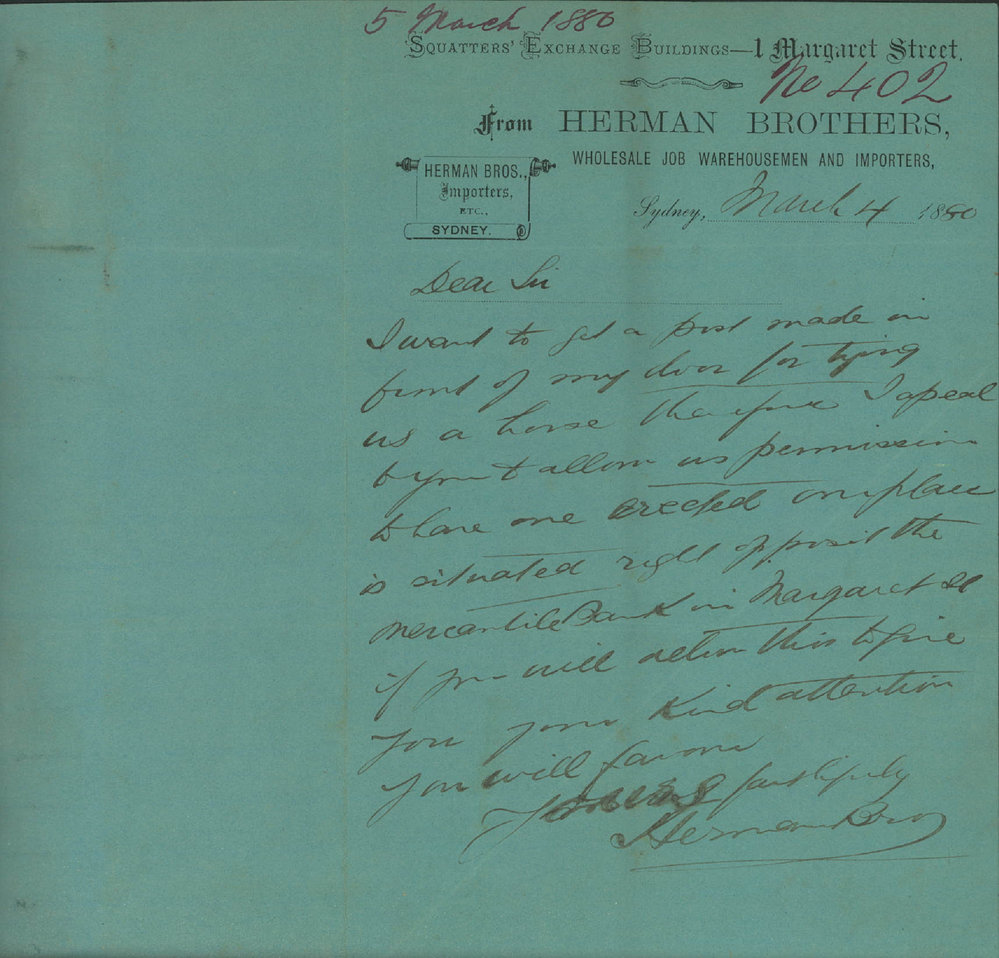 5 March 1880
SQUATTERS' EXCHANGE BUILDINGS—1 Margaret Street.
No 402
From HERMAN BROTHERS,
WHOLESALE JOB WAREHOUSEMEN AND IMPORTERS,
HERMAN BROS.,
Importers,
ETC.,
SYDNEY.
Sydney, March 4 1880
Dear Sir
I want to get a post made in
front of my door for tying
us a horse therefore I apeal
to you to allow us permission
to have one erected our place
is situated right opposit the
Mercantile Bank in Margaret St
if you will this to give
you your kind attention
you will favour
Yours faithfully
Herman Bros